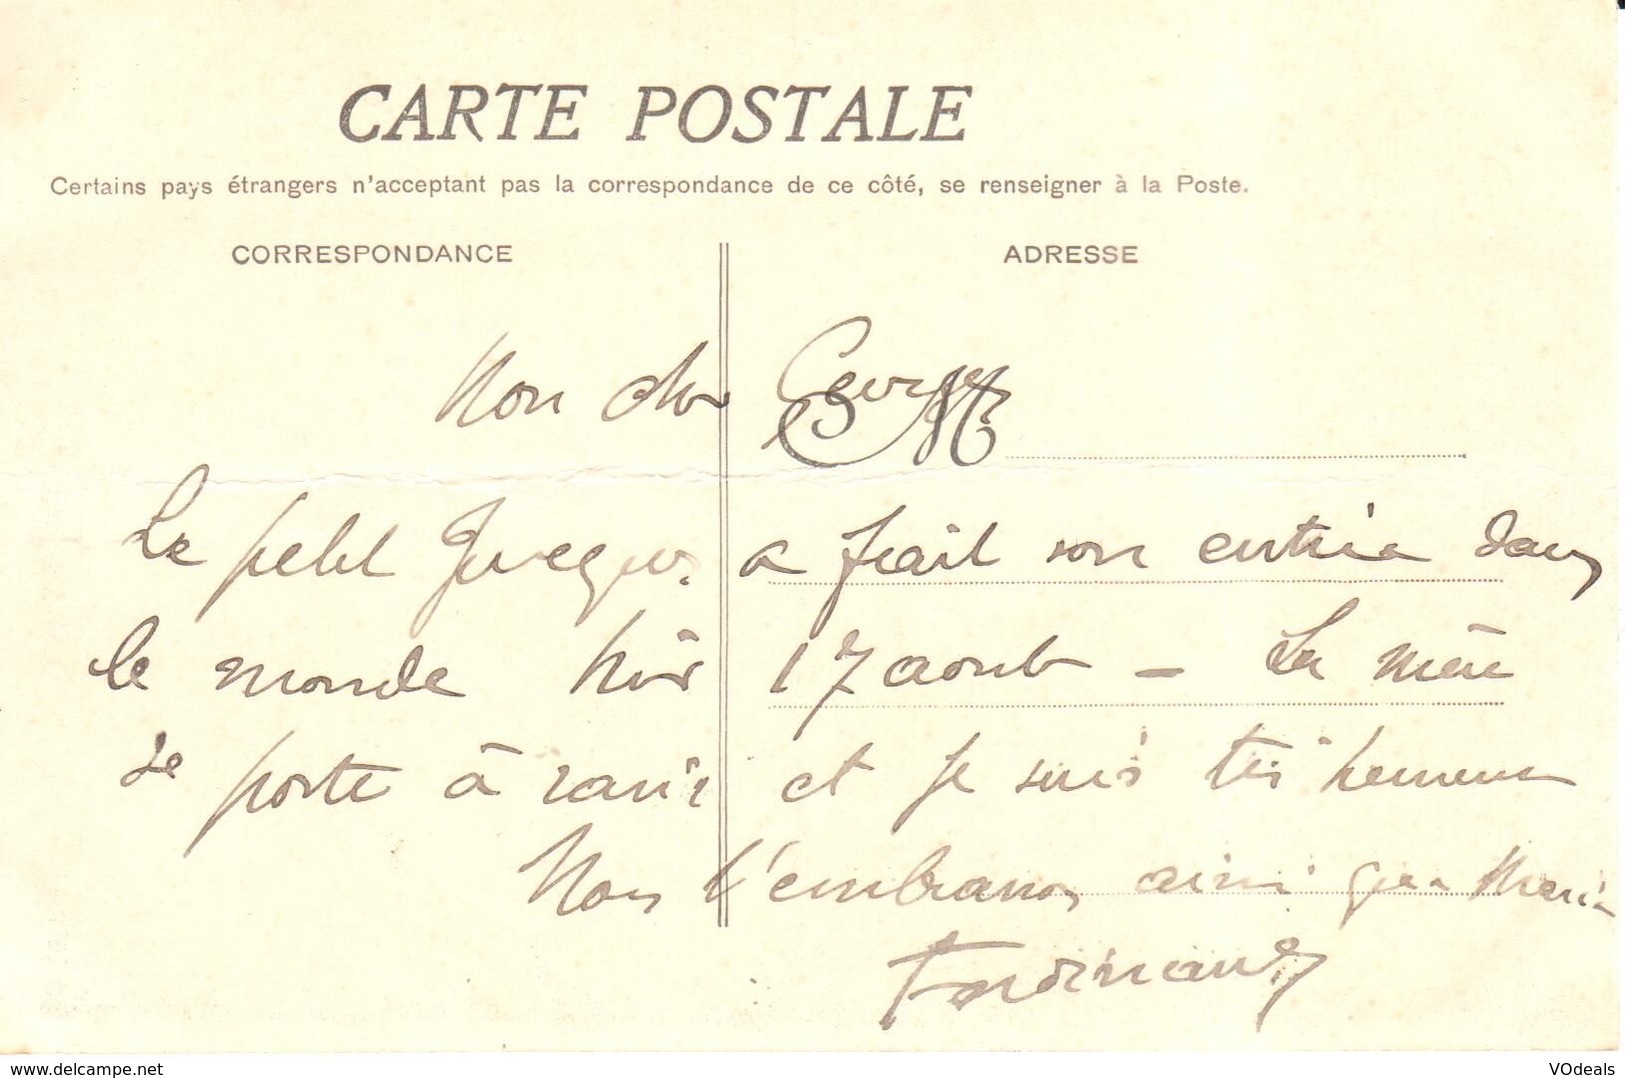 CARTE POSTALE
Certains pays étrangers n'acceptant pas la correspondance de ce côté, se renseigner à la Poste.
CORRESPONDANCE
ADRESSE
Mon cher Georges
Le petit Jacques a fait son entrée dans
le monde hier 17 aout - La mère
se porte à ravir et je suis très heureux
Nous t'embrassons ainsi que Marie
Ferdinand
www.delcampe.net
VOdeals